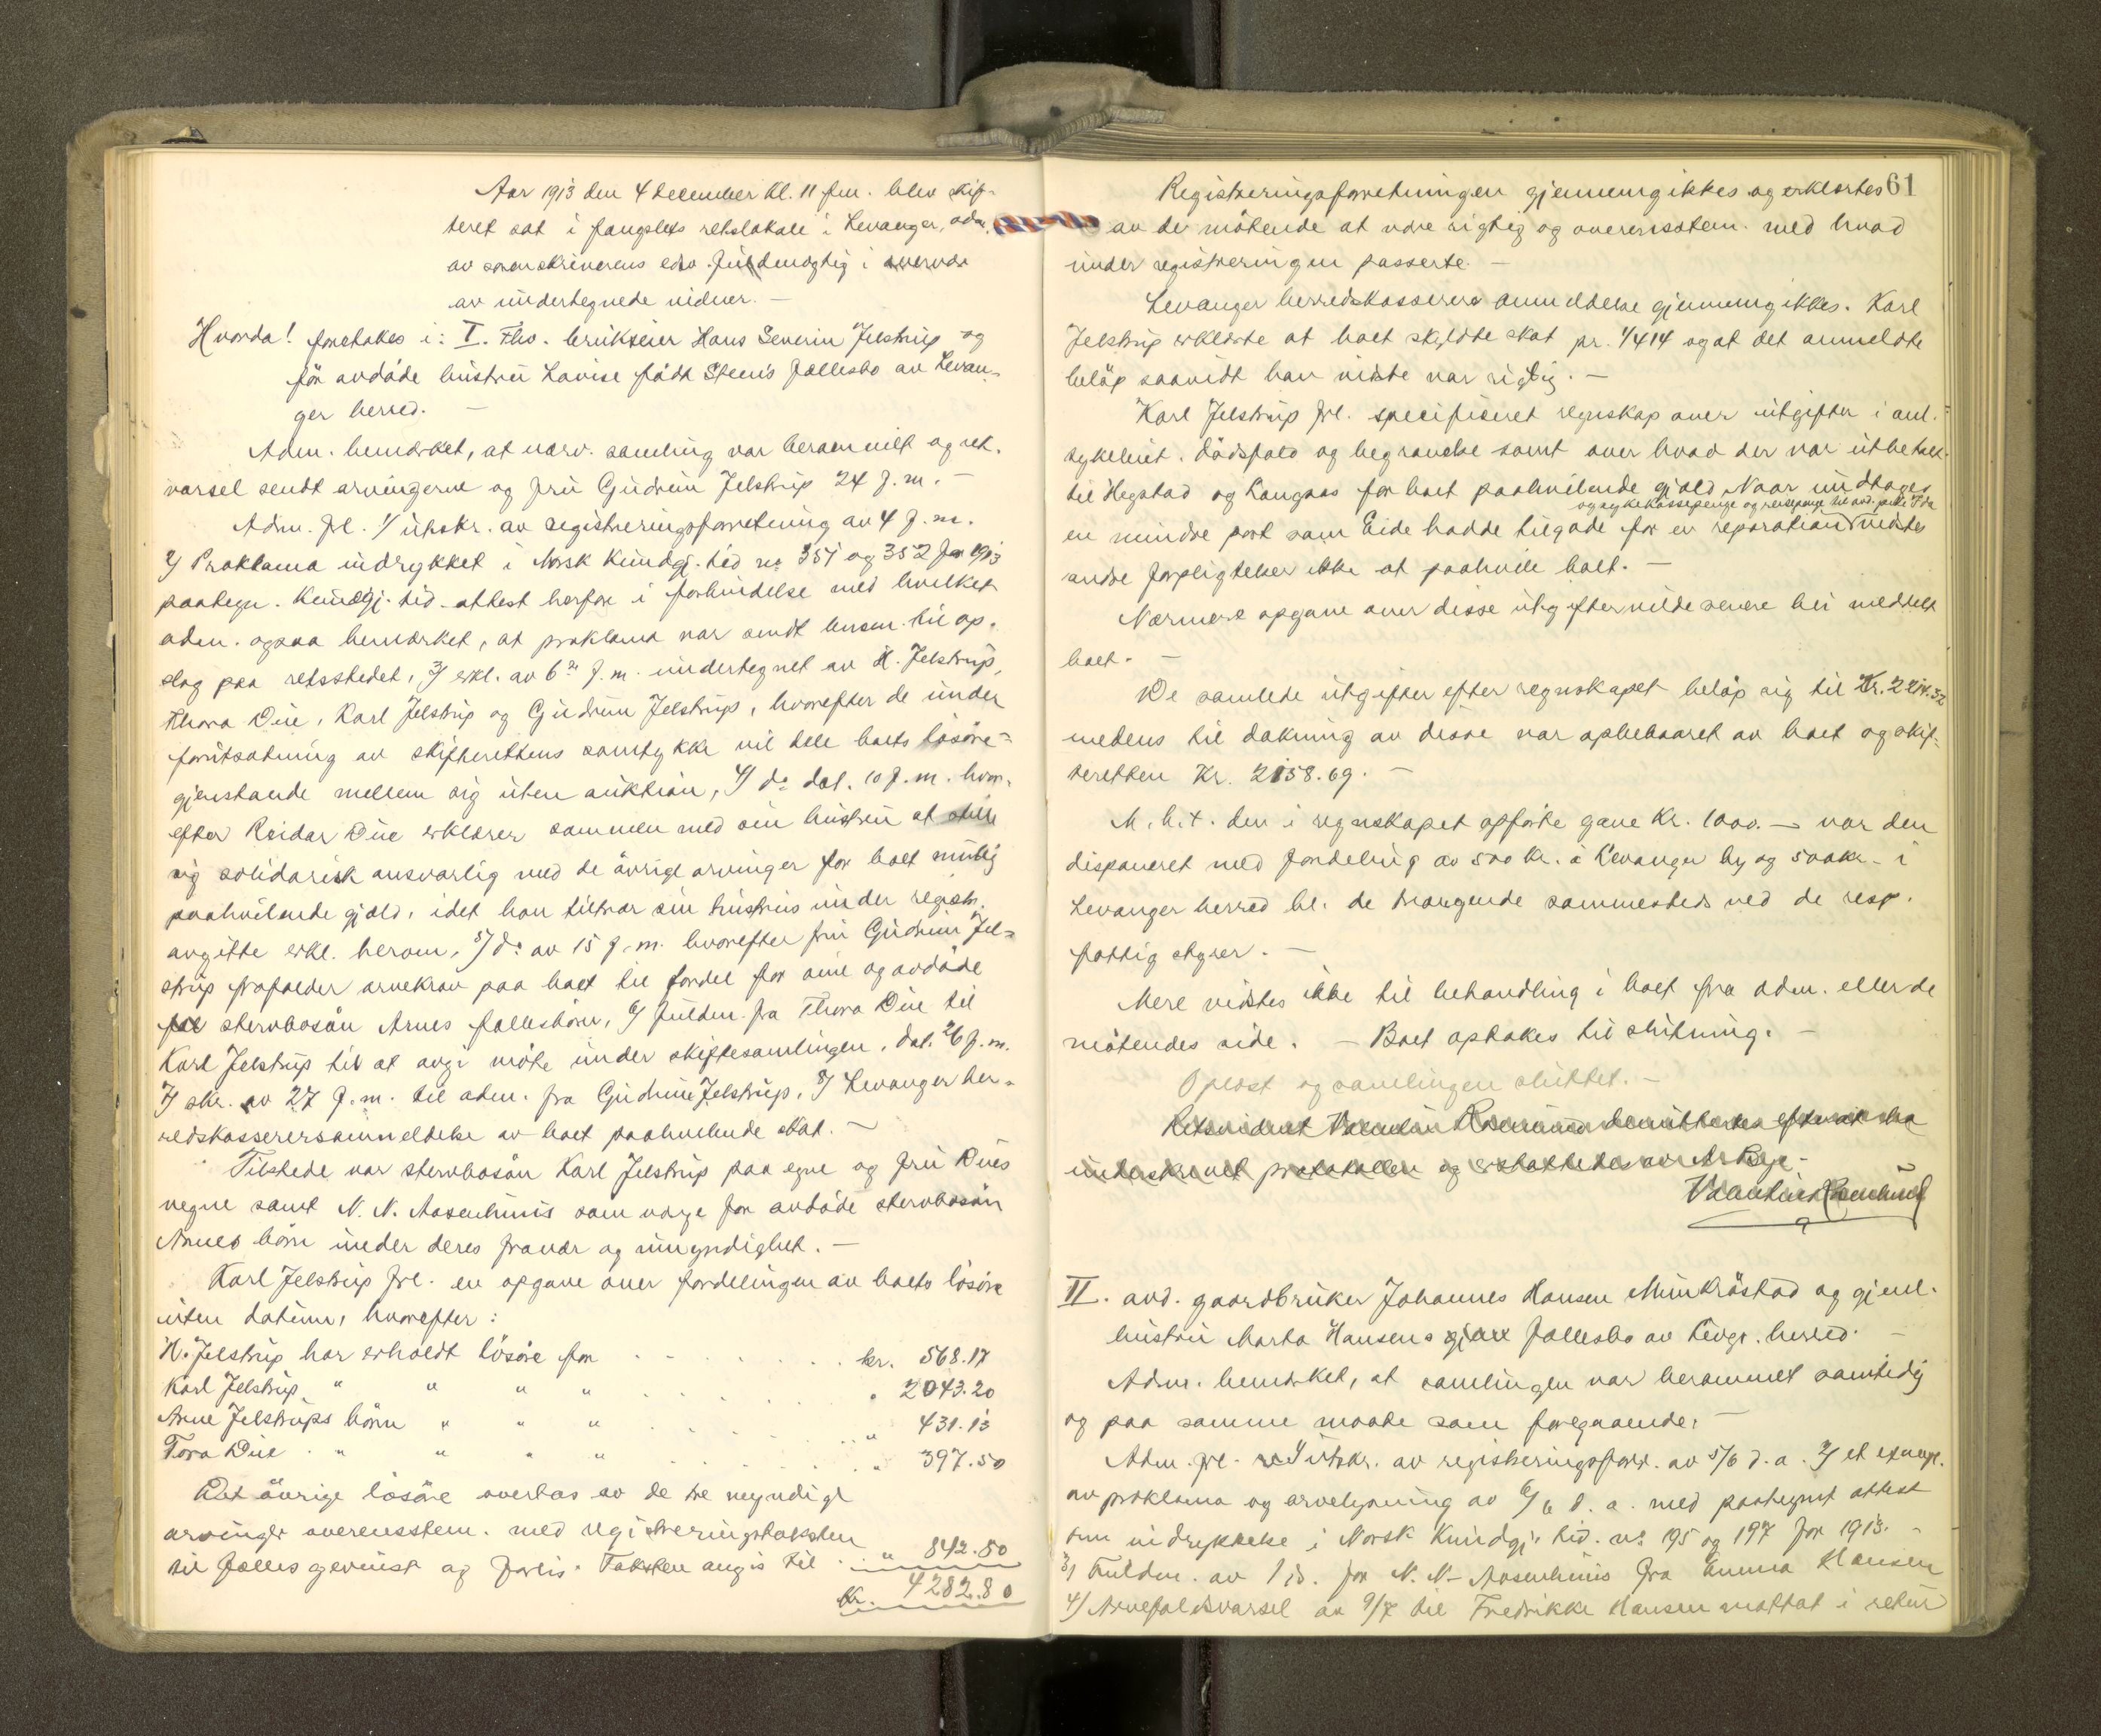 Aar 1913 den 4 December kl. 11 fm. blev skif-
teret sat i fængslets retslokale i Levanger, adm.
av sorenskriverens edsv. fuldmægtig i overvær
av undertegnede vidner. —
Hvorda! foretokes i: I. Fhv. bruksier Hans Severin Jelstrup og
før avdøde hustru Lovise født Steens fællesbo av Levan-
ger herred. —
Adm. bemerket, at nærv. samling var berammet og ret.
varsel sendt arvingerne og fru Gudrun Jelstrup 24 f. m. —
Adm. frl. 1/ utskr. av registreringsforretning av 4 f. m.
2/ Proklama indrykket i Norsk Kundgj. tid nr. 351 og 352 for 1913
paategn. Kundgj. tid. attest herfor i forbindelse med hvilket
adm. ogsaa bemerket, at proklama var sendt lensm. til op-
slag paa retsstedet, 3/ erkl. av 6 f. m. undertegnet av H. Jelstrup,
Thora Due, Karl Jelstrup og Gudrun Jelstrup, hvorefter de under
forutsætning av skifterettens samtykke vil dele boets løsøre-
gjenstande mellem sig uten auktion, 4/ do dat. 10 f. m. hvor-
efter Reidar Due erklærer sammen med sin hustru at stille
sig solidarisk ansvarlig med de øvrige arvinger for boet mulig
paahvilende gjæld, idet han tiltrær sin hustrus under registr.
avgitte erkl. herom, 5/ do av 15 f. m. hvorefter fru Gudrun Jel-
strup frafalder arvekrav paa boet til fordel for sine og avdøde
stervbosøn Arnes fællesbørn, 6/ fuldm. fra Thora Due til
Karl Jelstrup til at avgi møte under skiftesamlingen, dat. 26 f. m.
7/ skr. av 27 f. m. til adm. fra Gudrun Jelstrup, 8/ Levanger her-
redskasserersanmeldelse av boet paahvilende skat. —
Tilstede var stervbosøn Karl Jelstrup paa egne og fru Dues
vegne samt N. N. Aasenhuus som verge for avdøde stervbosøn
Arnes børn under deres fravær og umyndighet. —
Karl Jelstrup frl. en opgave over fordelingen av boets løsøre
uten datum, hvorefter:
H. Jelstrup har erholdt løsøre for . . . . . . kr. 568.17
Karl Jelstrup " " " " . . . . . " 2043.20
Arne Jelstrups børn " " " . . . . . " 431.13
Tora Due . " " " " . . . . . " 397.50
Det øvrige løsøre overtas av de tre myndige
arvinger overensstem. med registreringstaksten
til fælles gevinst og forlis. Taksten angis til . . " 842.80
Kr. 4282.80
61
Registreringsforretningen gjennemgikkes og erklærtes
av de møtende at være rigtig og overensstem. med hvad
under registreringen passerte. —
Levanger herredskasserers anmeldelse gjennemgikkes. Karl
Jelstrup erklærte at boet skyldte skat pr. 1/4 14 og at det anmeldte
beløp saavidt han vidste var rigtig. —
Karl Jelstrup frl. specificeret regnskap over utgifter i anl.
sykeleiet, dødsfald og begravelse samt over hvad der var utbetalt
til Hegstad og Langaas for boet paahvilende gjæld. Naar undtages
og sykekassepenge og reisepenge til avd. pike Ida
en mindre post som Eide hadde tilgode for en reparation vidstes
andre forpligtelser ikke at paahvile boet. —
Nærmere opgave over disse utgifter vilde senere bli meddelt
boet. —
De samlede utgifter efter regnskapet beløp sig til Kr. 2214.32
medens til dækning av disse var opbebaaret av boet og skif-
teretten Kr. 2158.69. —
M. h. t. den i regnskapet opførte gave kr. 1000. — var den
disponeret med fordeling av 500 kr. i Levanger by og 500 kr. i
Levanger herred bl. de trængende sammesteds ved de resp.
fattigstyrer. —
Mere vidstes ikke til behandling i boet fra adm. eller de
møtendes side. — Boet optokes til slutning. —
Oplæst og samlingen sluttet. —
Retsvidnet Valentin Rosenlund demitteres efter at ha
underskrevet protokollen og erstattedes av
Valentin Rosenlund
II. avd. gaardbruker Johannes Hansen Munkrøstad og gjenl.
hustru Marta Hansens fællesbo av Levgr. herred. —
Adm. bemerket, at samlingen var berammet samtidig
og paa samme maate som foregaaende. —
Adm. frl. 1/ utskr. av registreringsforr. av 5/6 d. a. 2/ et exempl.
av proklama og arvelysning av 6/6 d. a. med paategnet attest
om indrykkelse i Norsk Kundgj. tid. nr. 195 og 197 for 1913. —
3/ Fuldm. av for N. N. Aasenhuus fra Emma Hansen
4/ Arvefaldsvarsel av 9/7 til Fredrikke Hansen mottat i retur